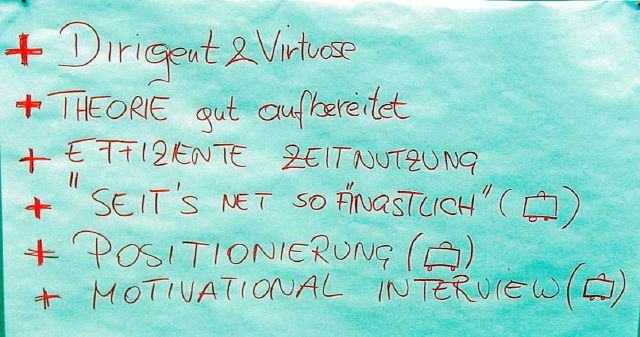 + Dirigent & Virtuose
+ THEORIE gut aufbereitet
+ EFFIZIENTE ZEITNUTZUNG
+ "SEIT'S NET SO ÄNGSTLICH" ( )
+ POSITIONIERUNG ( )
+ MOTIVATIONAL INTERVIEW ( )